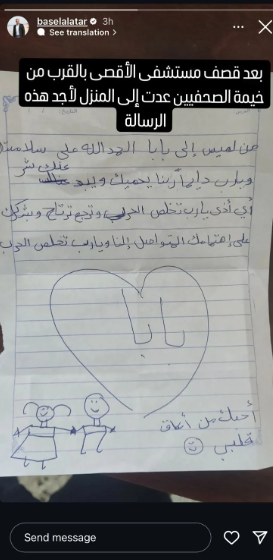 baselalatar 3h
See translation >
بعد قصف مستشفى الأقصى بالقرب من
خيمة الصحفيين عدت إلى المنزل لأجد هذه
الرسالة
من لميس إلى بابا الحمد الله على سلامتك
ويارب دايماً ربنا يحميك ويبعد عنك شر
أي أذى يارب تخلص الحرب وترجع ترتاح وبشكرك
على إهتمامك المتواصل إلنا ويارب تخلص الحرب
بابا
أحبك من أعماق
قلبي
Send message